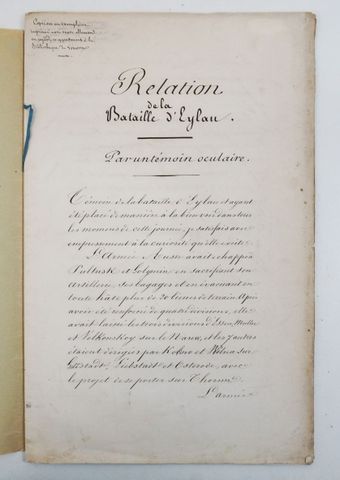 Copié sur un exemplaire
imprimé avec texte allemand
en regard, et appartenant à la
Bibliothèque de
Relation
de la
Bataille d'Eylau.
Par un témoin oculaire.
Témoin de la bataille d'Eylau et ayant
été placé de manière à la bien voir dans tous
les moments de cette journée, je satisfais avec
empressement à la curiosité qu'elle excite.
L'Armée Russe avait échappé à
Pultusk et Golymin en sacrifiant son
artillerie, ses bagages et en évacuant en
toute hâte plus de 30 lieues de terrain. Après
avoir été renforcée de quatre divisions, elle
avait laissé les trois divisions d'Essen, Muller
et Volkonskoy sur le Narew, et les 7 autres
étaient dirigées par Kolno et sur
Liebstadt et Osterode, avec
le projet de se porter sur Thorn.
L'armée